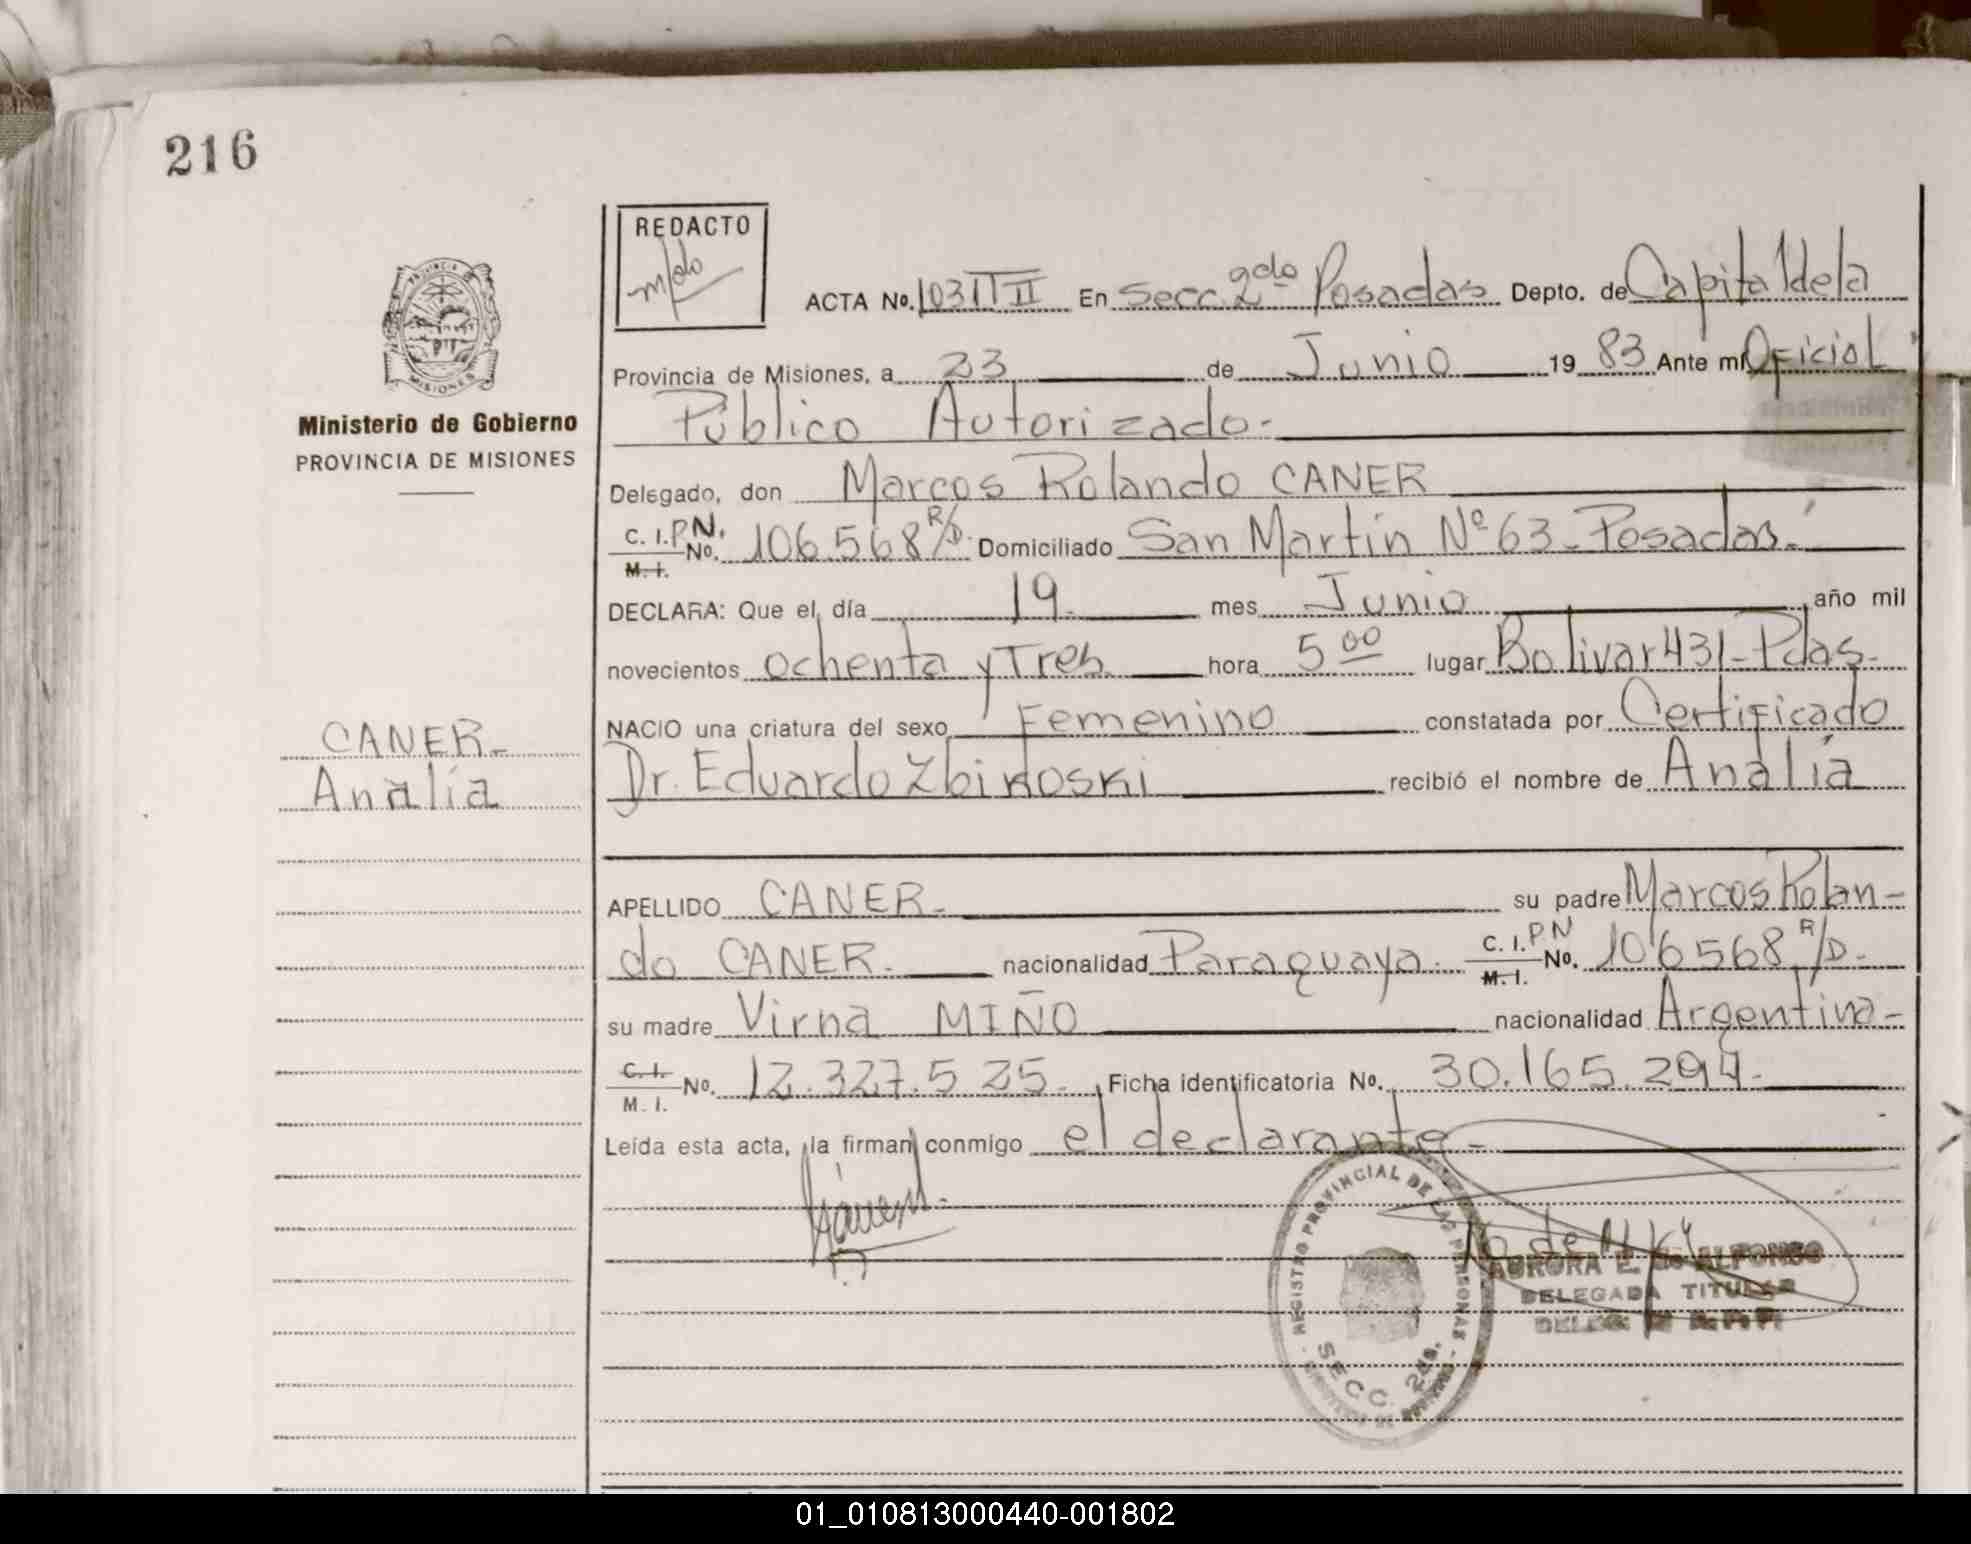 216
REDACTO
ACTA No. 1031 T II En Secc. 2da Posadas Depto. de Capital de la
Provincia de Misiones, a 23 de Junio 1983 Ante mí Oficial
Público Autorizado.-
Ministerio de Gobierno
PROVINCIA DE MISIONES
Delegado, don Marcos Rolando CANER
C. I. P.N. M. I. No. 106.568 R/D. Domiciliado San Martín Nº 63 - Posadas.-
DECLARA: Que el día 19. mes Junio año mil
novecientos ochenta y Tres hora 5 00 lugar Bolivar 431 - Pdas.-
NACIO una criatura del sexo Femenino constatada por Certificado
Dr. Eduardo Zbikoski recibió el nombre de Analía
CANER-
Analía
APELLIDO CANER- su padre Marcos Rolan-
do CANER. nacionalidad Paraguaya. C. I. PN M. I. No. 106568 R/D.-
su madre Virna MIÑO nacionalidad Argentina-
C. I. M. I. No. 12.327.525.- Ficha identificatoria No. 30.165.294.-
Leída esta acta, la firman conmigo el declarante-
REGISTRO PROVINCIAL DE LAS PERSONAS
SECC. 2da.
AURORA E. de ALFONSO
DELEGADA TITULAR
01_010813000440-001802